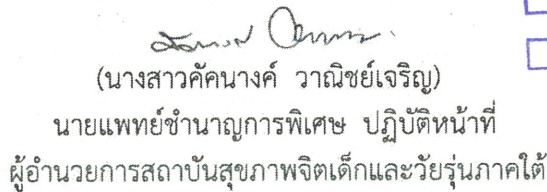 (นางสาวคัคนางค์ วาณิชย์เจริญ)
นายแพทย์ชำนาญการพิเศษ ปฏิบัติหน้าที่
ผู้อำนวยการสถาบันสุขภาพจิตเด็กและวัยรุ่นภาคใต้